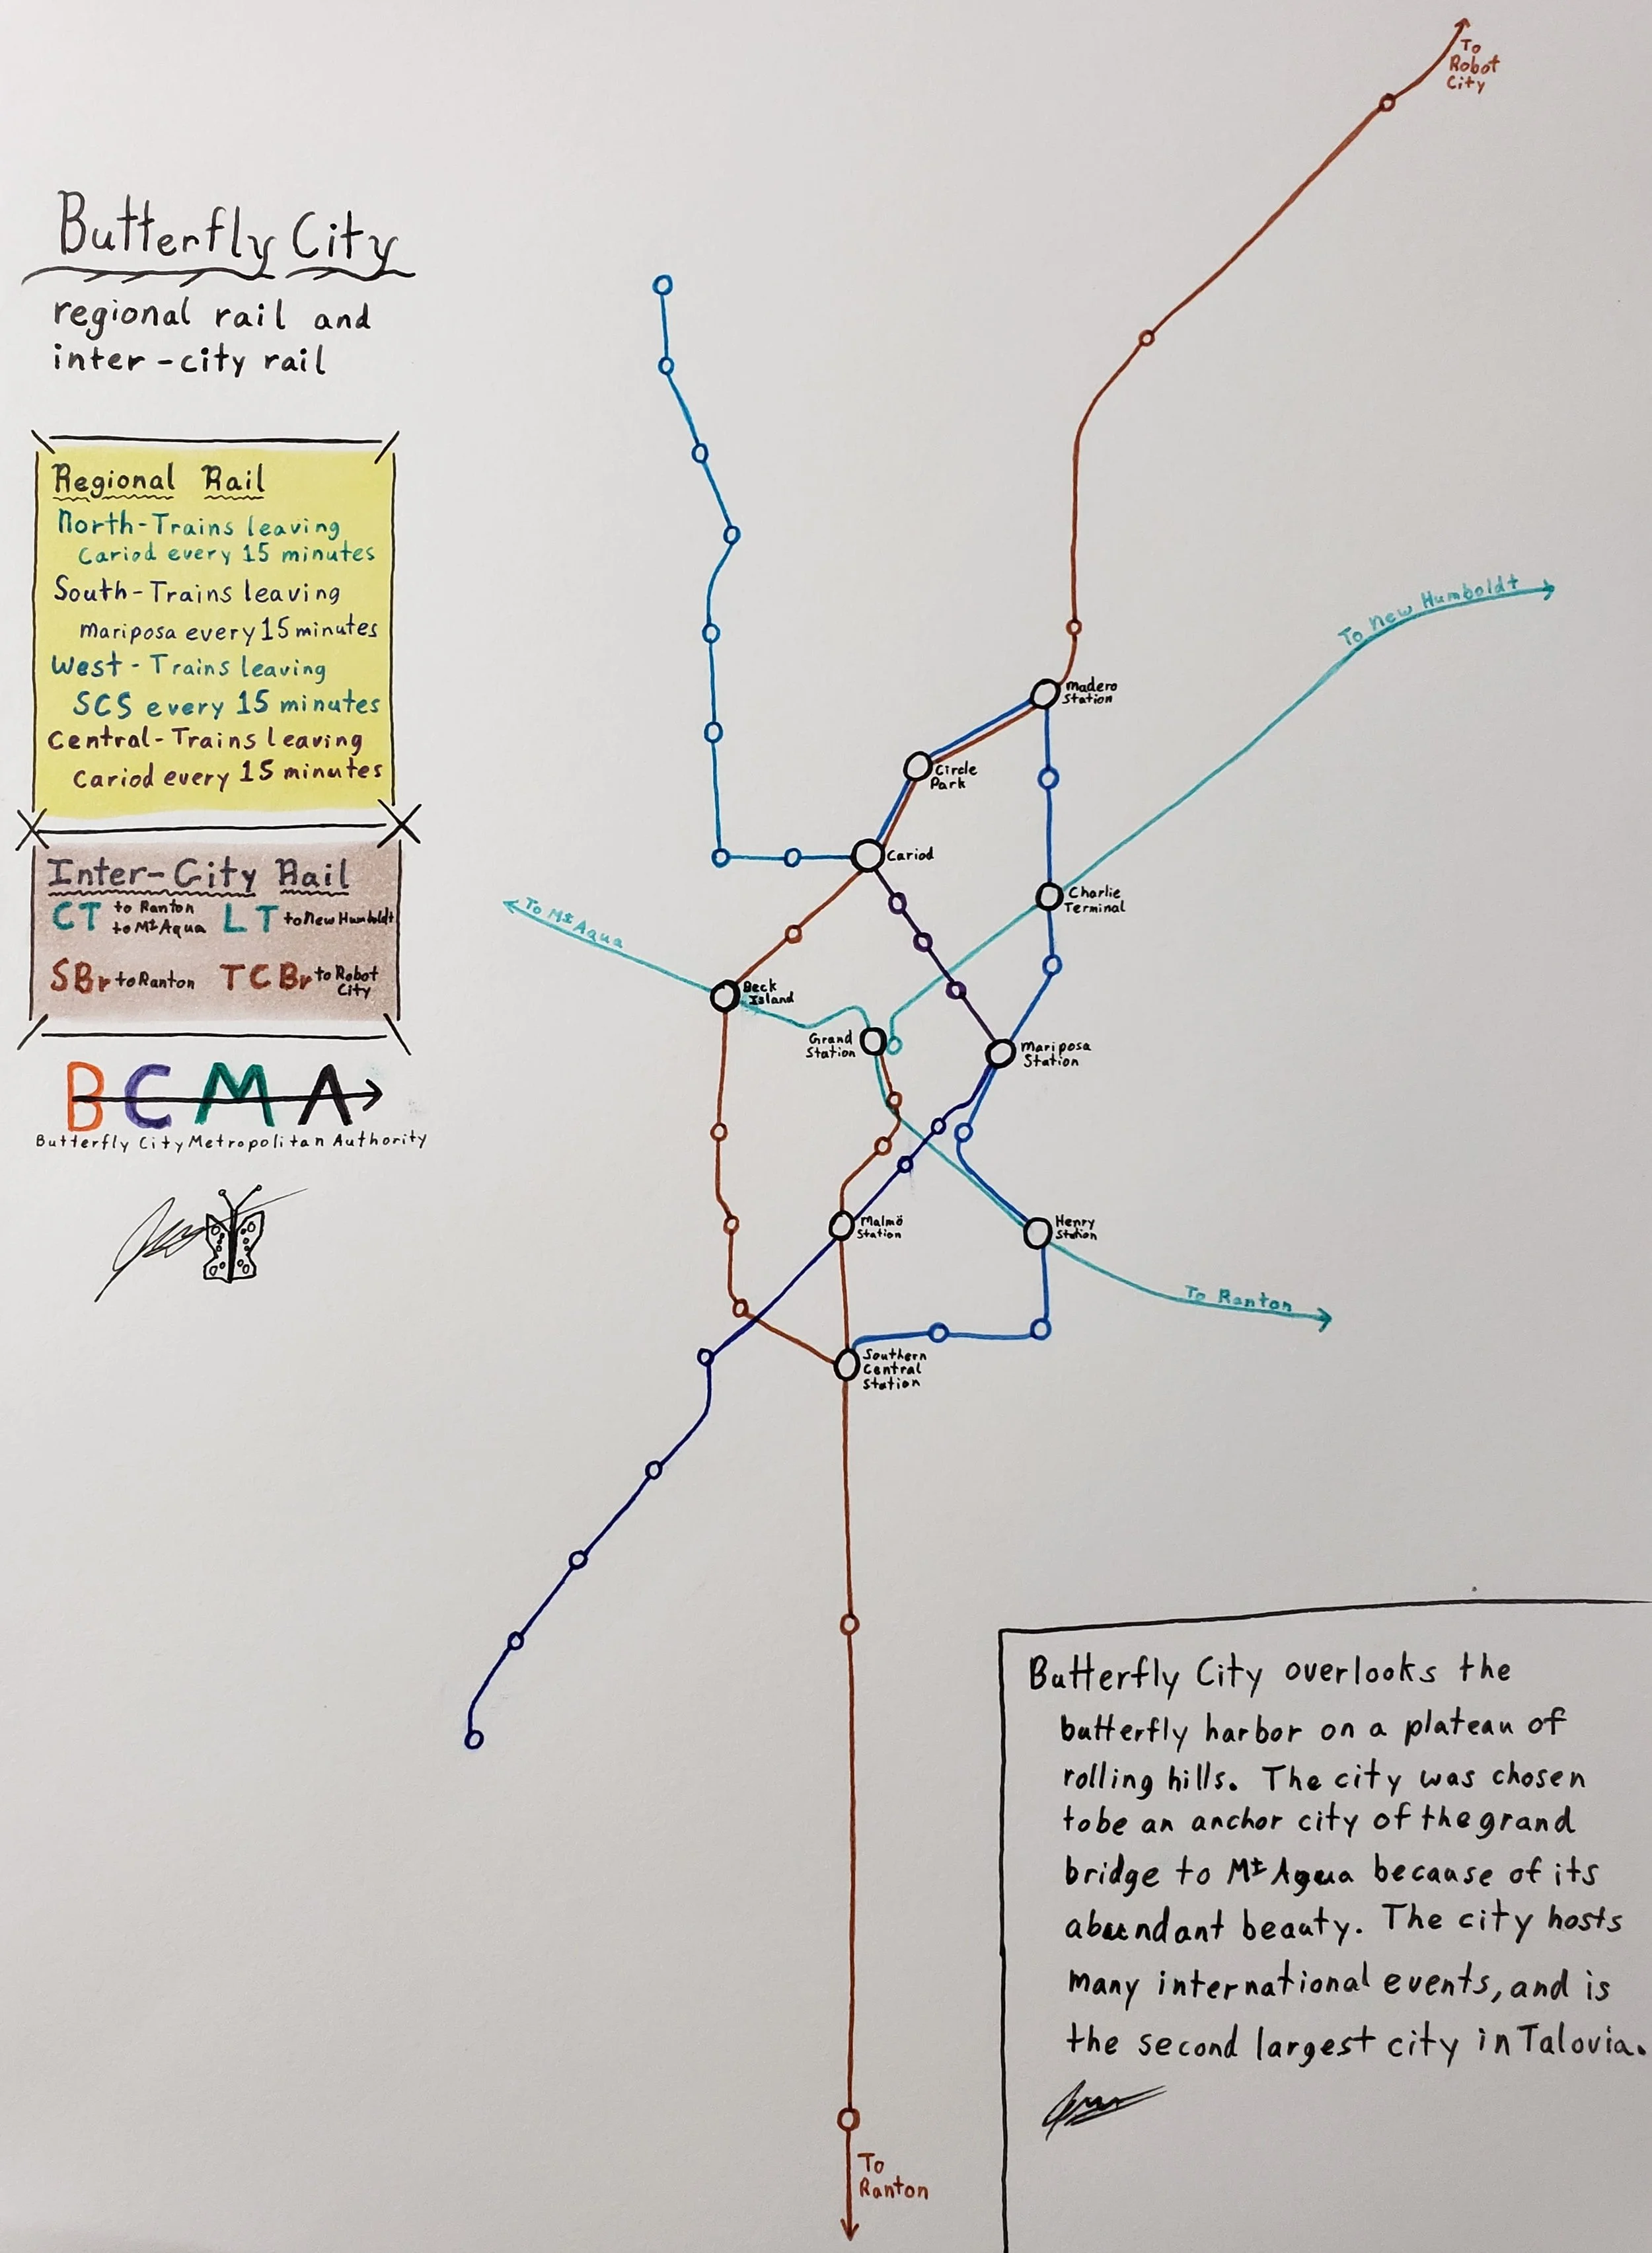 Butterfly City
regional rail and
inter-city rail
Regional Rail
North-Trains leaving
Cariod every 15 minutes
South-Trains leaving
Mariposa every 15 minutes
West - Trains leaving
SCS every 15 minutes
Central-Trains leaving
Cariod every 15 minutes
Inter-City Rail
CT to Ranton
to Mt Aqua
LT to New Humboldt
SBr to Ranton
TCBr to Robot
City
BCMA
Butterfly City Metropolitan Authority
To
Robot
City
To New Humboldt
Madero
Station
Circle
Park
Cariod
Charlie
Terminal
To Mt Aqua
Beck
Island
Grand
Station
Mariposa
Station
Malmö
Station
Henry
Station
To Ranton
Southern
Central
Station
To
Ranton
Butterfly City overlooks the
butterfly harbor on a plateau of
rolling hills. The city was chosen
tobe an anchor city of the grand
bridge to Mt Aqua because of its
abundant beauty. The city hosts
many international events, and is
the second largest city in Talovia.